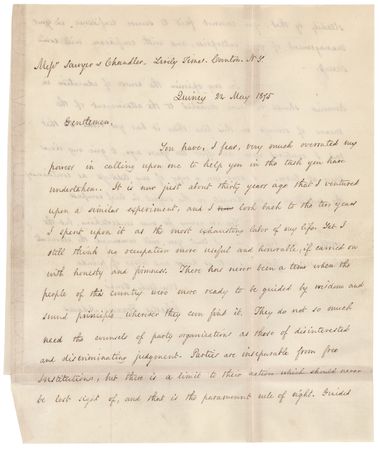 Messrs Sawyer & Chandler. Lively Times. Canton. N.Y.
Quincy 24 May 1875
Gentlemen.
You have, I fear, very much overrated my
powers in calling upon me to help you in the task you have
undertaken. It is now just about thirty years ago that I ventured
upon a similar experiment, and I look back to the two years
I spent upon it as the most exhausting labor of my life. Yet I
still think no occupation more useful and honorable, if carried on
with honesty and firmness. There has never been a time when the
people of this country were more ready to be guided by wisdom and
sound principle wherever they can find it. They do not so much
need the counsels of party organizations as those of disinterested
and discriminating judgment. Parties are inseparable from free
institutions, but there is a limit to their action which should never
be lost sight of, and that is the paramount rule of right. Guided